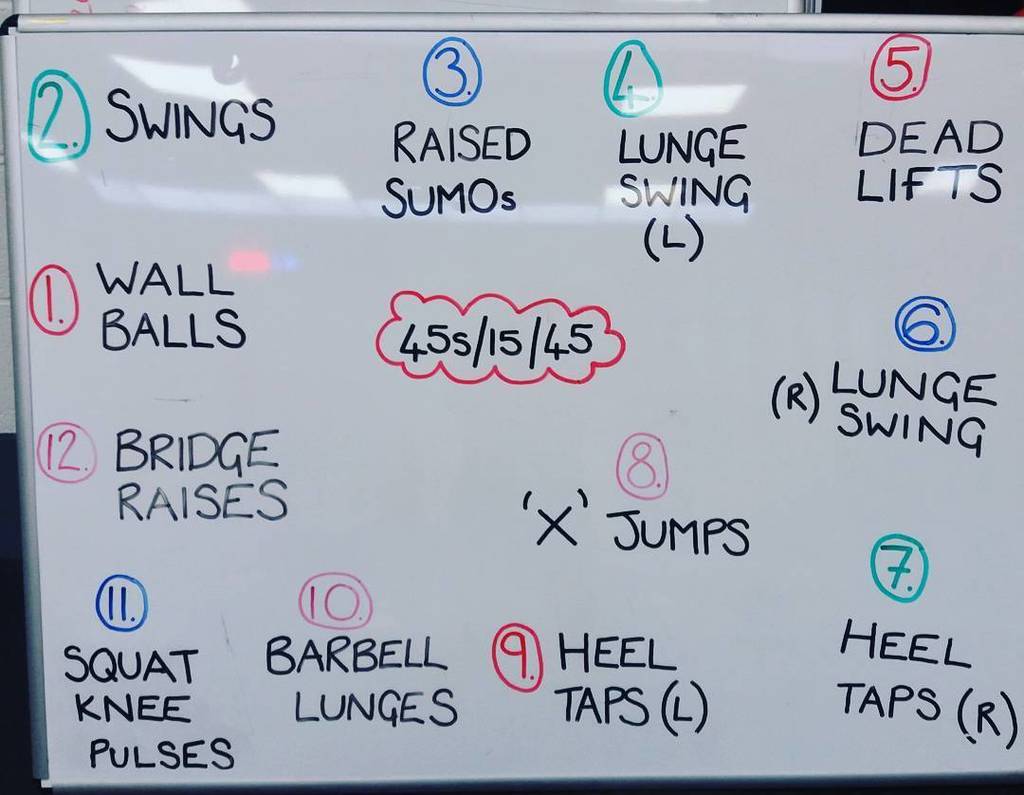 2. SWINGS
3.
RAISED
SUMOs
4.
LUNGE
SWING
(L)
5.
DEAD
LIFTS
1. WALL
BALLS
45s/15/45
6.
(R) LUNGE
SWING
12. BRIDGE
RAISES
8.
'X' JUMPS
7.
HEEL
TAPS (R)
11.
SQUAT
KNEE
PULSES
10.
BARBELL
LUNGES
9. HEEL
TAPS (L)